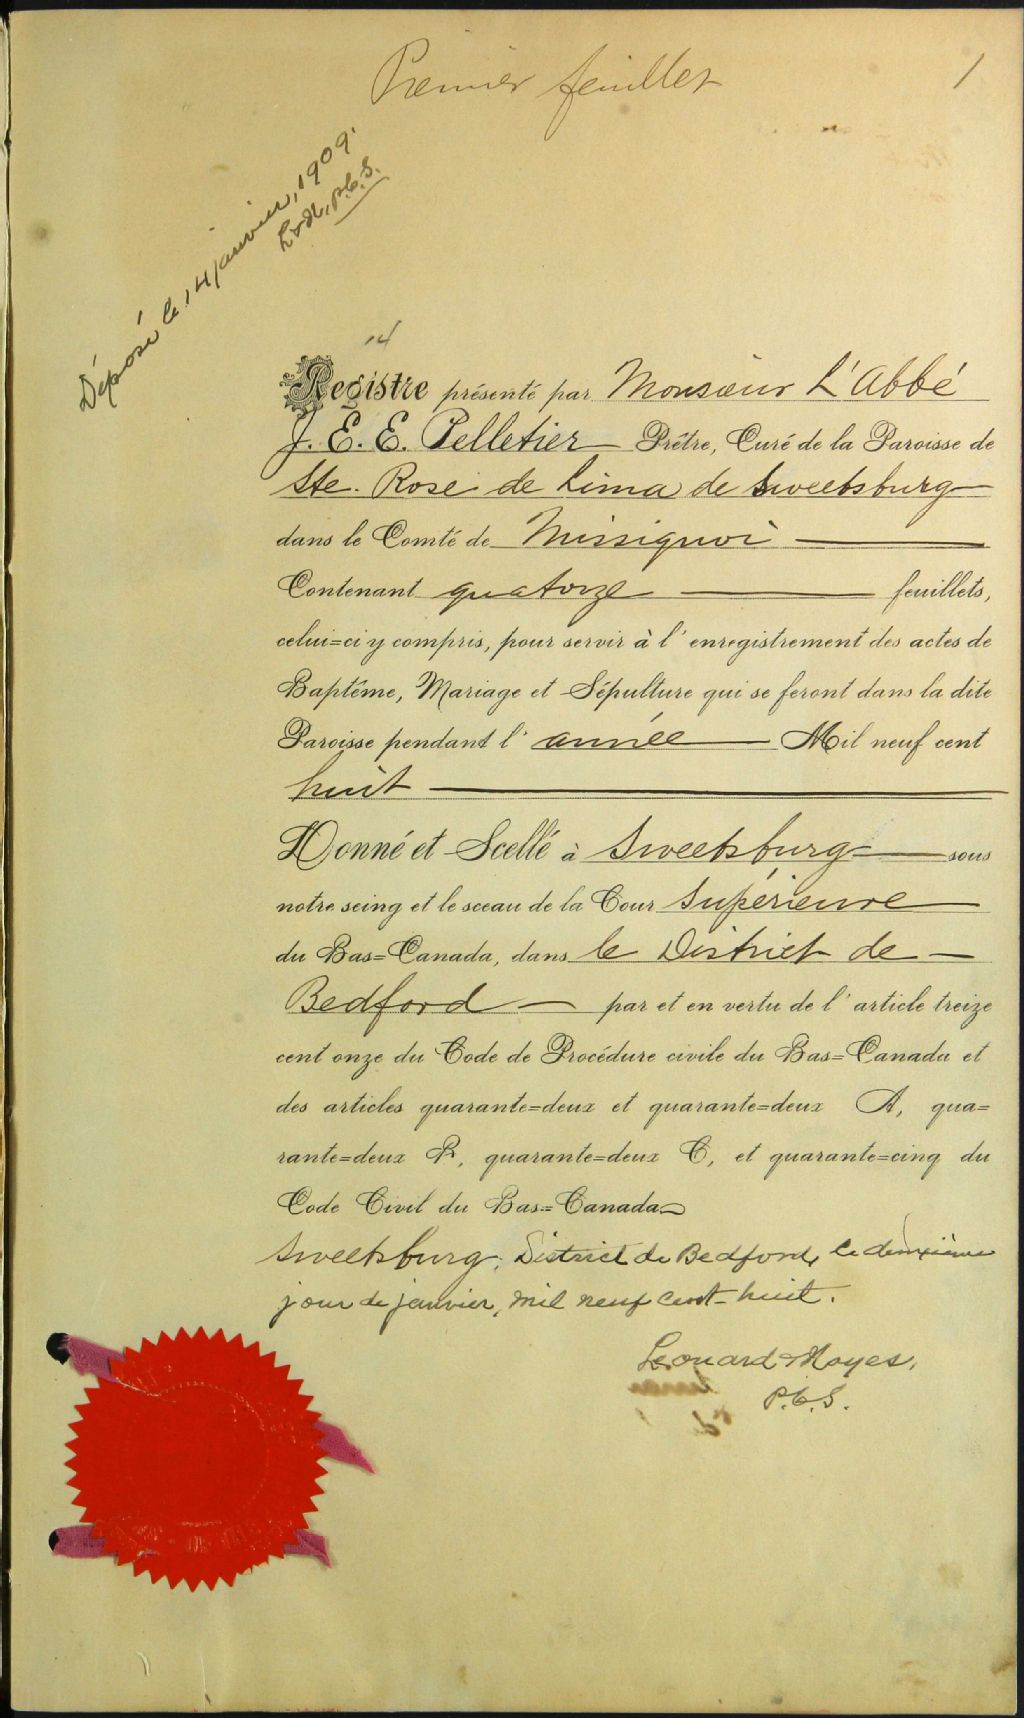 Premier feuillet
1
Déposé le 14 janvier, 1909.
P.C.S.
14
Registre présenté par Monsieur L'Abbé
J. E. E. Pelletier Prêtre, Curé de la Paroisse de
Ste. Rose de Lima de Sweetsburg
dans le Comté de Missisquoi
Contenant quatorze feuillets,
celui=ci y compris, pour servir à l'enregistrement des actes de
Baptême, Mariage et Sépulture qui se feront dans la dite
Paroisse pendant l'année Mil neuf cent
huit
Donné et Scellé à Sweetsburg sous
notre seing et le sceau de la Cour Supérieure
du Bas=Canada, dans le District de
Bedford par et en vertu de l'article treize
cent onze du Code de Procédure civile du Bas=Canada et
des articles quarante=deux et quarante=deux A, qua=
rante=deux B, quarante=deux C, et quarante=cinq du
Code Civil du Bas=Canada
Sweetsburg, District de Bedford, le deuxième
jour de janvier, mil neuf cent huit.
Leonard & Noyes,
P.C.S.